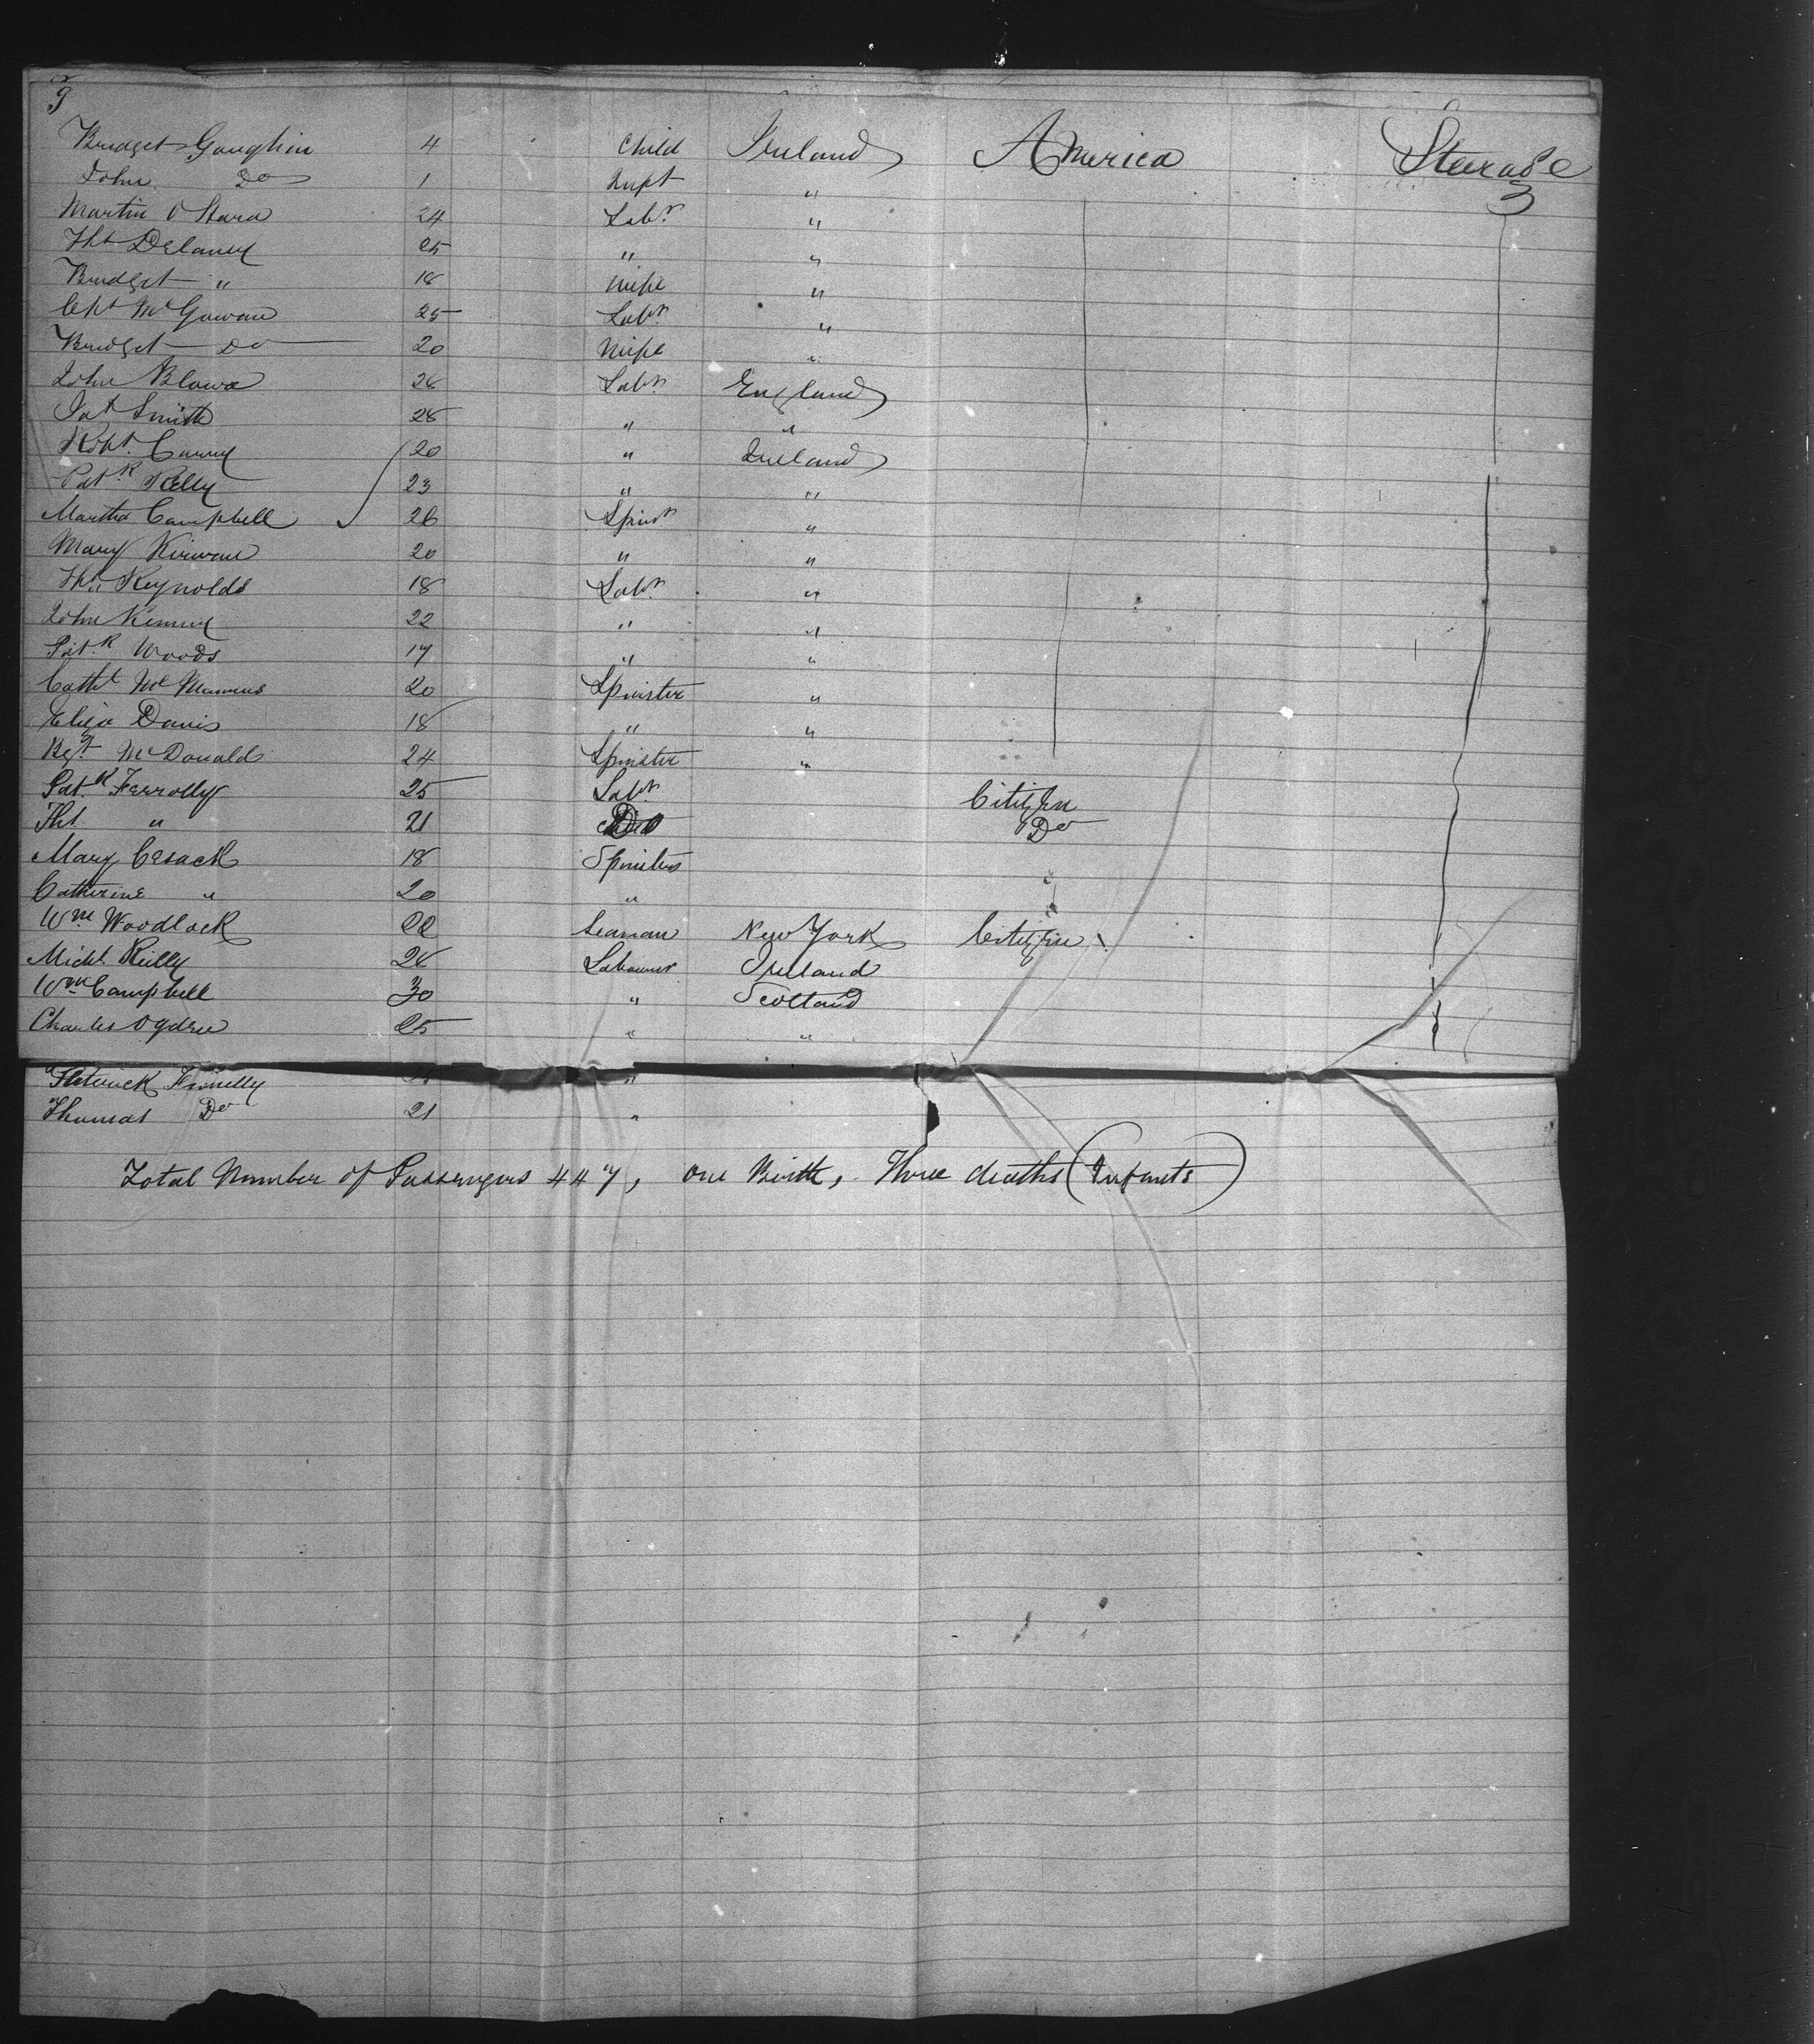 9
Bridget Gaughin 4 Child Ireland America Steerage
John Do 1 Inft " 3
Martin O Hara 24 Labr "
Ths Delaney 25 " "
Bridget " 18 Wife "
McGowan 25 Labr "
Bridget Do 20 Wife "
John 26 Labr England
Jas Smith 28 " "
Robt. 20 " Ireland
Patk Kelly 23 " "
Martha Campbell 26 Spinr "
Mary Kirwan 20 " "
Ths Reynolds 18 Labr "
John Kenny 22 " "
Patk Woods 17 " "
Cathe Mc Manus 20 Spinster "
Eliza Davis 18 " "
Bgt McDonald 24 Spinster "
Patk Ferrolly 25 Labr Citizen
Ths " 21 Do Do
Mary Cusack 18 Spinsters
Catherine " 20 "
Wm Woodlock 22 Seaman New York Citizen
Michl Reilly 26 Labourer Ireland
Wm Campbell 30 " Scotland
Charles Ogden 25 " "
Patrick "
Thomas Do 21 "
Total Number of Passengers 447, one Birth, Three deaths (Infants)